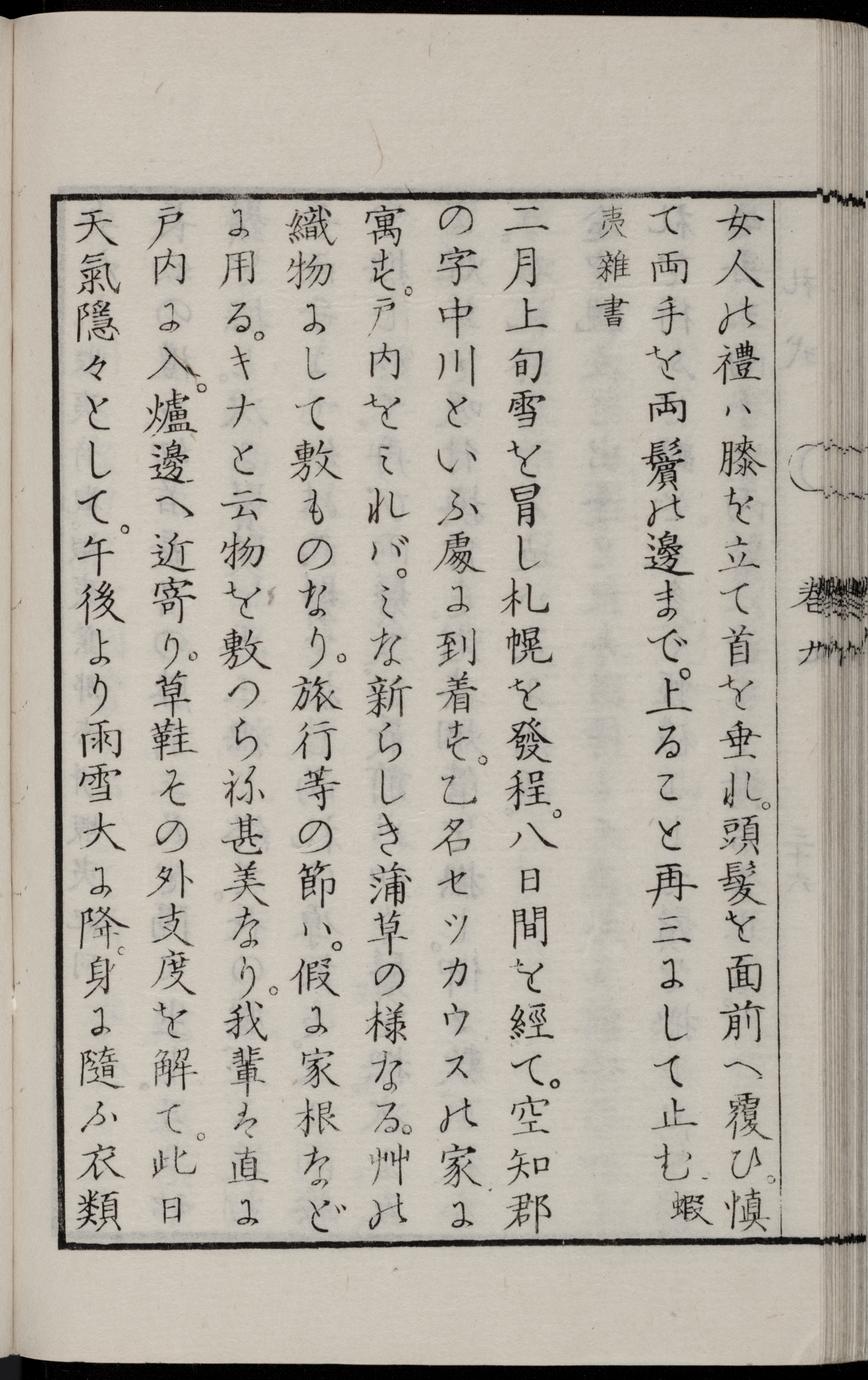 女人の禮ハ膝を立て首を垂れ。頭髪を面前へ覆ひ。慎
て両手を両鬢の邊まで。上ること再三にして止む 蝦
夷雜書
二月上旬雪を冒し札幌を發程。八日間を經て。空知郡
の字中川といふ處に到着す。乙名セツカウスの家に
寓す。戸内をミれバ。ミな新らしき蒲草の様なる。艸の
織物にして敷ものなり。旅行等の節ハ。假に家根など
に用る。キナと云物を敷つらね甚美なり。我輩は直に
戸内に入。爐邊へ近寄り。草鞋その外支度を解て。此日
天氣隱々として。午後より雨雪大に降。身に隨ふ衣類
巻九